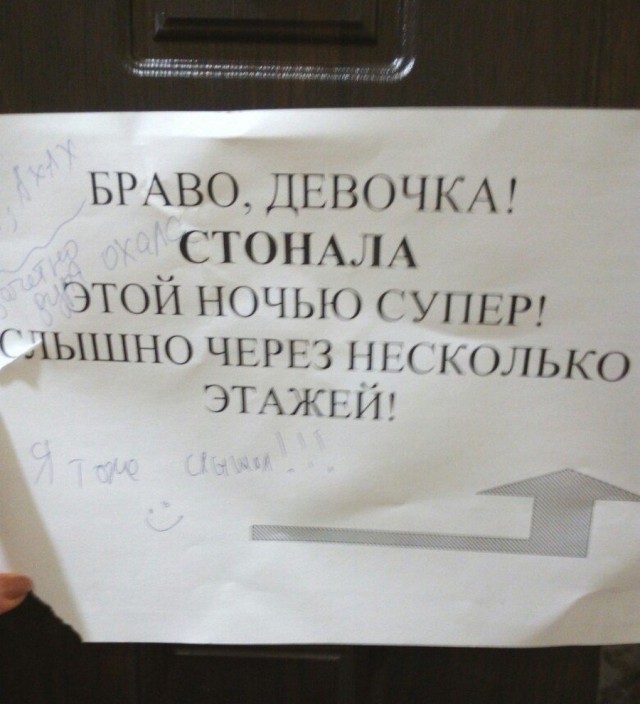 АХАХ
БРАВО, ДЕВОЧКА!
СТОНАЛА
ЭТОЙ НОЧЬЮ СУПЕР!
СЛЫШНО ЧЕРЕЗ НЕСКОЛЬКО
ЭТАЖЕЙ!
Я тоже слышал!!!